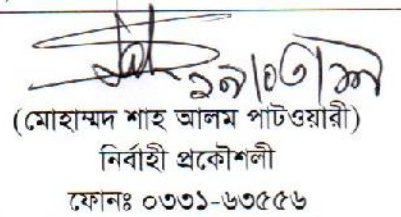 (মোহাম্মদ শাহ আলম পাটওয়ারী)
নির্বাহী প্রকৌশলী
ফোনঃ ০৩৩১-৬৩৫৫৬